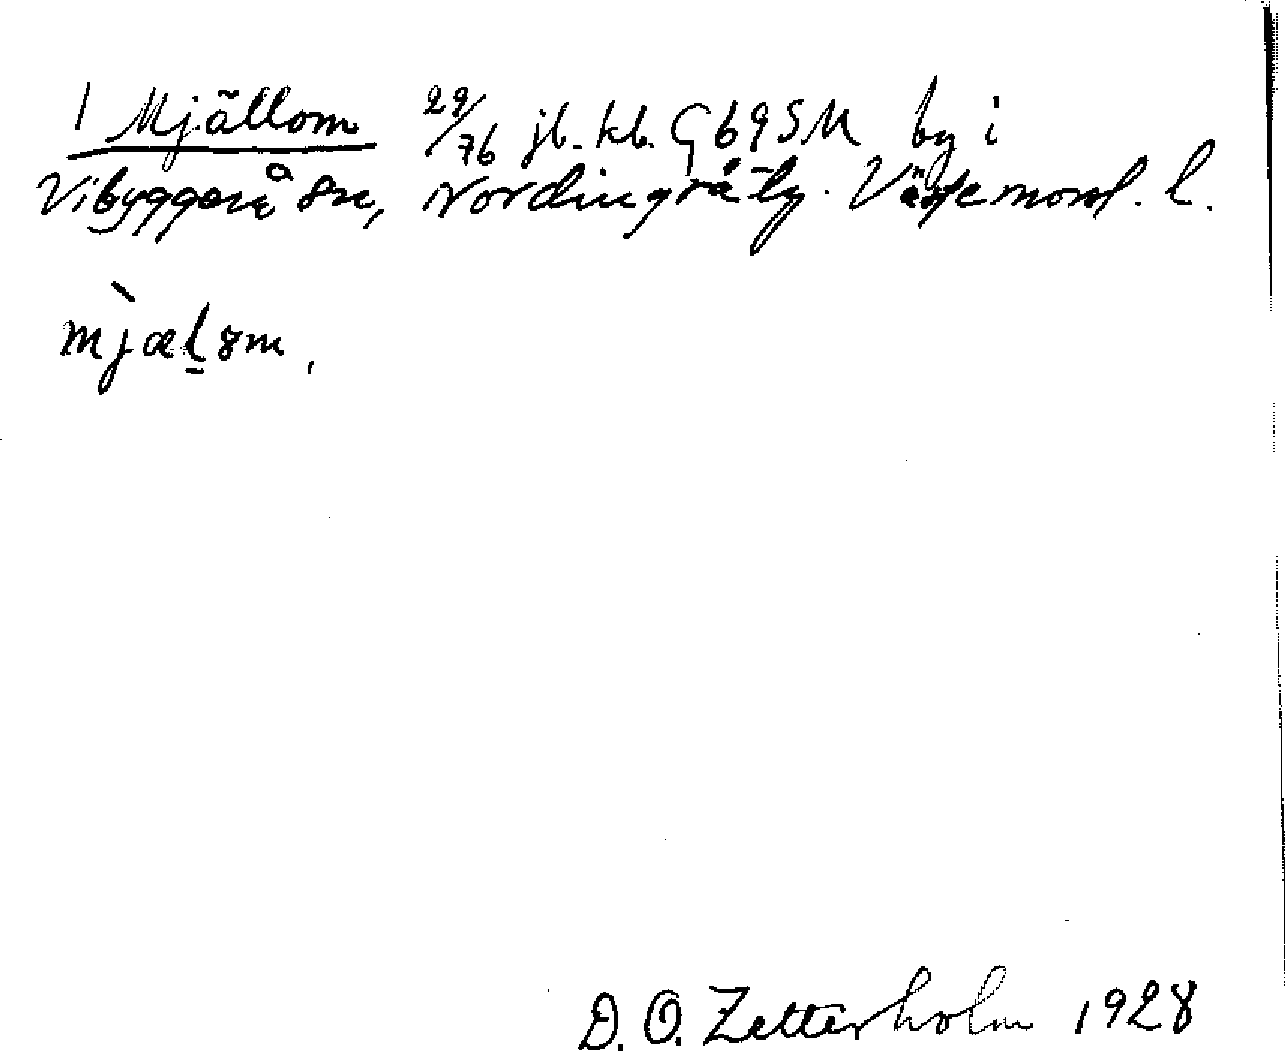 1 Mjällom 29/76 jb. kb. G69SM by i
Vibyggerå sn, Nordingrå tg. Västernorrl. l.
mjæl̠ɜm,
D. O. Zetterholm 1928